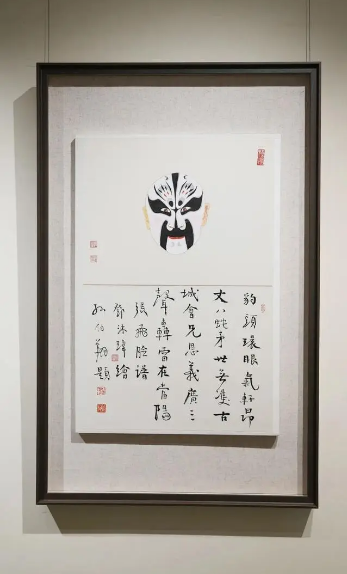 豹頭環眼氣軒昂
丈八蛇矛世無雙古
城會兄恩義廣三
聲轟雷在當陽
張飛臉譜
鄧沐瑋繪
孫伯翔題